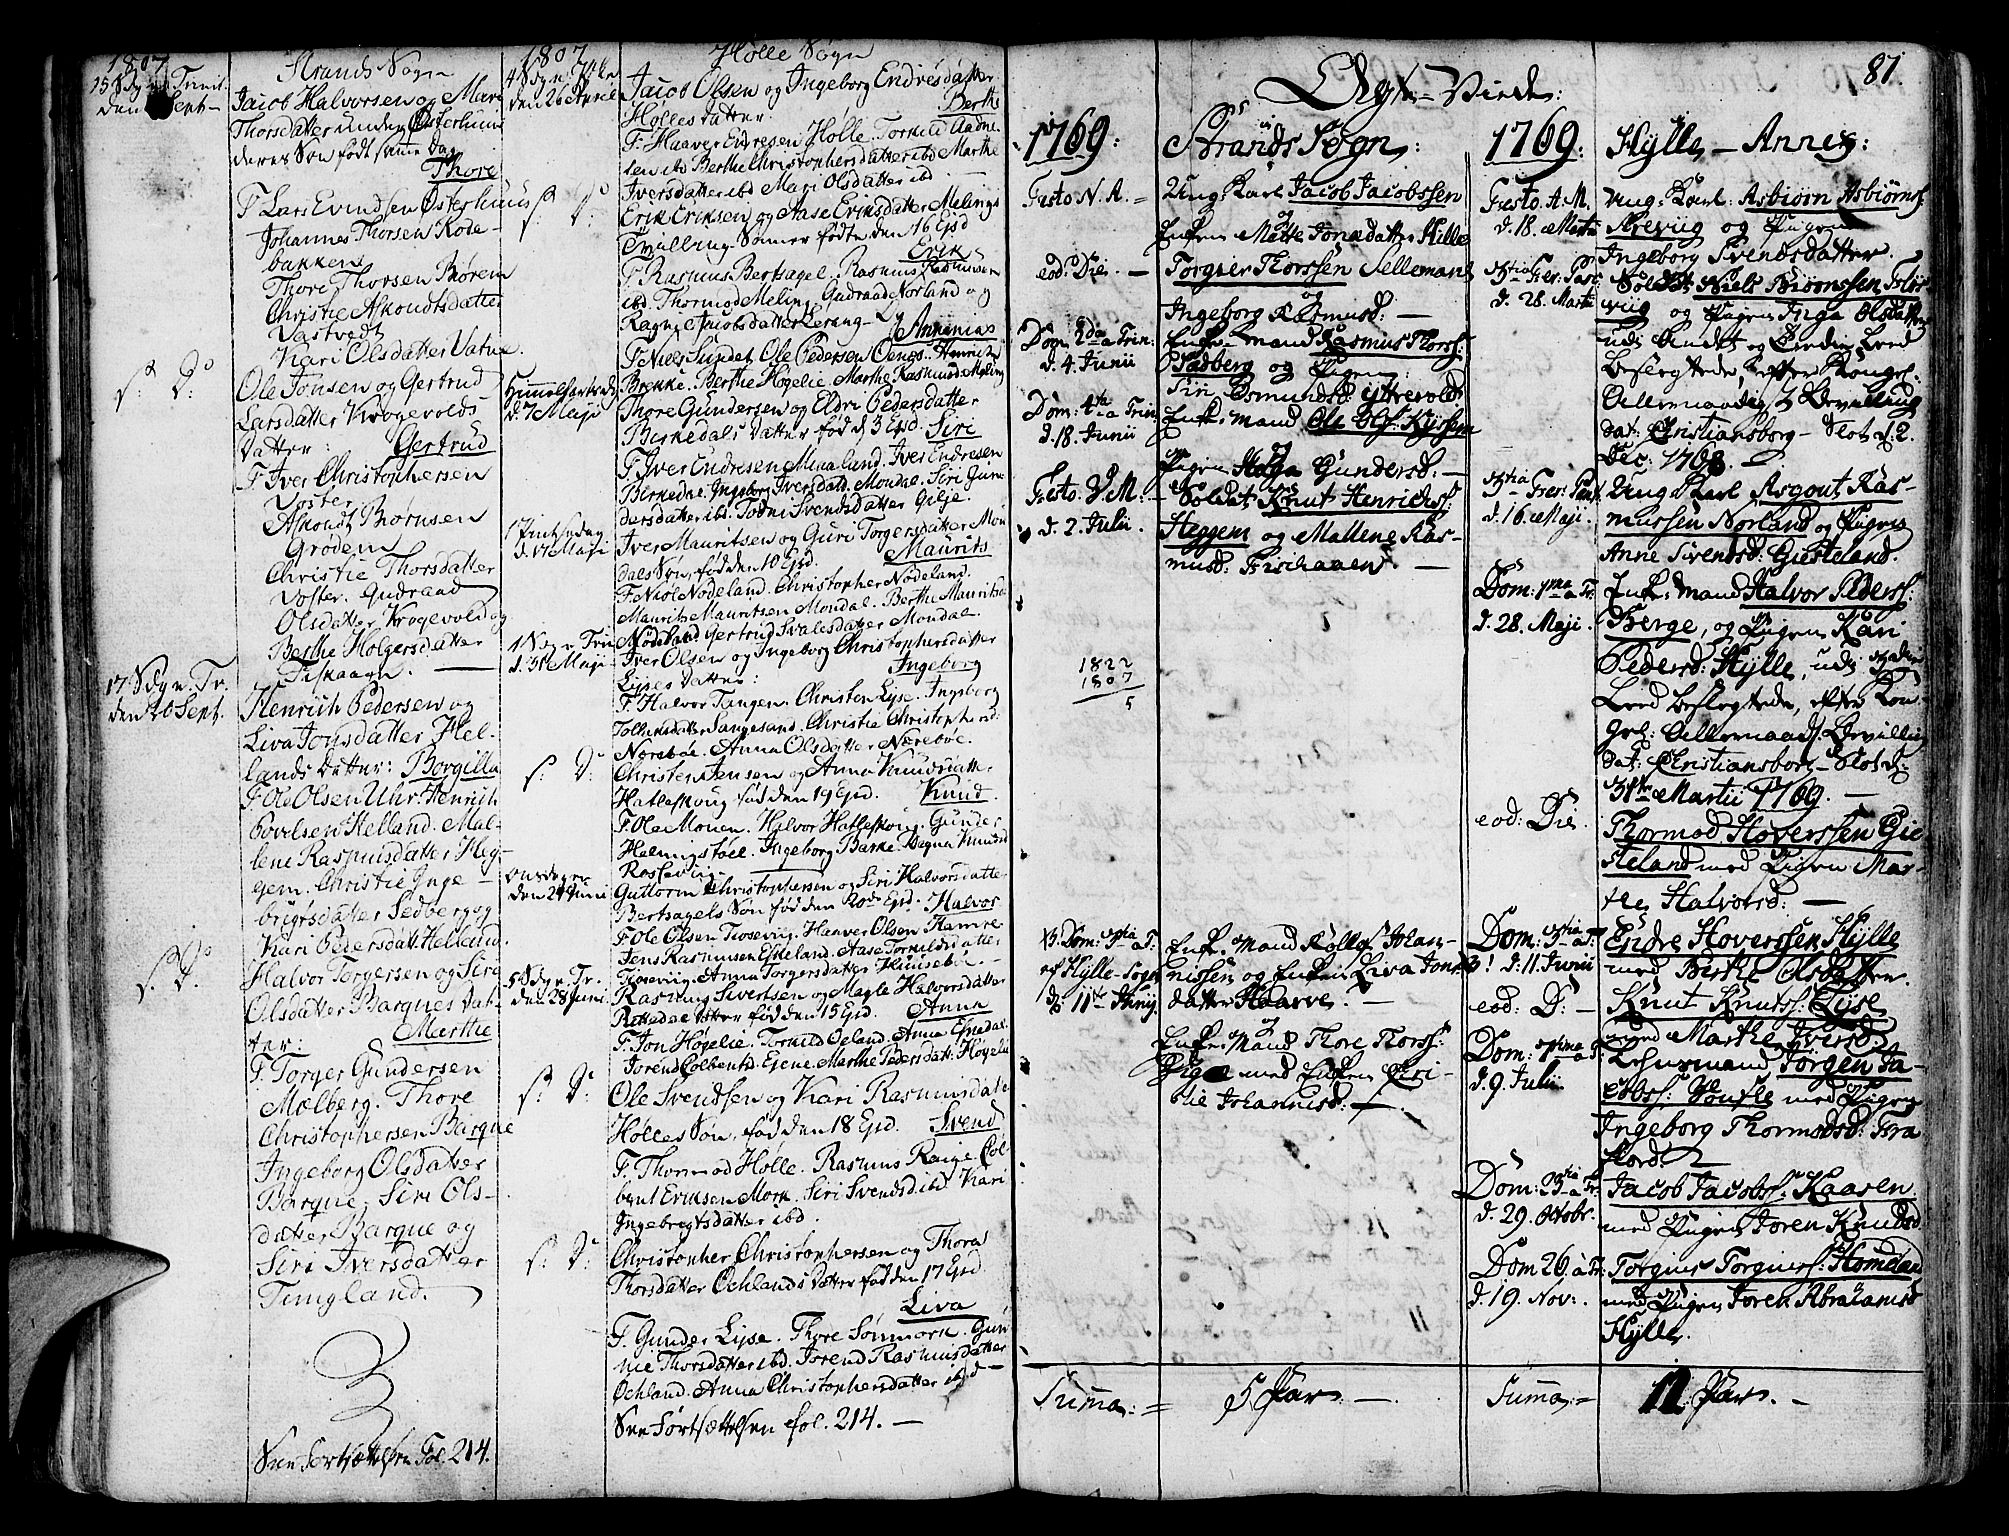 1807
Strands Sogn
15 Sdgn. Trinit.
den Sept.
Jacob Halvorsen og Mari
Thorsdatter under Østerhuus
deres Søn født samme Dag
Thore
F. Lars Evindsen Østerhuus
Johannes Thorsen Rode-
bakken
Thore Thorsen Biørem
Christie Asmondsdatter
Tastvedt
Kari Olsdatter Vatne.
s. D.
Ole Jonsen og Gertrud
Larsdatter Krogevolds
Datter:
Gertrud
F. Iver Christophersen
Voster
Asmondt Biørnsen
Grødem
Christie Thorsdatter
Voster. Gudraad
Olsdatter Krogevold og
Berthe Holgersdatter
Fiskaaen.
17 Sdgn. Tr.
den 20 Sept.
Henrich Pedersen og
Liva Jonsdatter Hel-
lands Datter: Borgilla
F. Ole Olsen Uhr. Henrich
Povelsen Helland. Mal-
lene Rasmusdatter Heg-
gem. Christie Inge-
brigtsdatter Sedberg og
Kari Pedersdatt. Helland.
s. D.
Halvor Torgersen og Siri
Olsdatter Barques Dat-
ter:
Marthe
F. Torger Gundersen
Mælberg. Thore
Christophersen Barque
Ingeborg Olsdatter
Barque, Siri Ols-
datter Barque og
Siri Iversdatter
Tungland.
See Fortsættelsen Fol. 214.
1807
Hølle Sogn
4 Sdgn. Paske
den 26 April
Jacob Olsen og Ingeborg Endresdatter
Hølles datter.
Berthe
F. Haaver Endresen Holle. Torkild Aadne-
sen ibd. Berthe Christophersdatter ibd. Marthe
Iversdatter ibd. Mari Olsdatter ibd.
s. D.
Erik Eriksen og Aase Eriksdatter Melings
Tvilling-Sønner fødte den 16 Ejsd
Erik
F. Rasmus Bertsagel. Rasmus Rasmussen
ibd. Thormod Meling. Gudraad Norland og
Ragnie Jacobsdatter Lerang. Og Annanias
F. Niels Sundet. Ole Pedersen Oenæs. Henrich
Brekke. Berthe Hogelie. Marthe Rasmusd. Meling
Himmelfartsdag
d. 7 Maji
Thore Gundersen og Eldri Pedersdatter
Berkedals Datter fød d. 3 Ejsd. Siri
F. Iver Endresen Mina land. Iver Endresen
Berkedne. Ingeborg Iversdatt. Mondal. Siri Gun-
dersdatter ibd. Torni Svendsdatter Gilje.
1 Pintsedag
d. 17 Maji
Iver Mauritsen og Guri Torgersdatter Mon
dals Søn, fød den 10 Ejsd. Maurits
F. Niel Nodeland. Christopher Nodeland.
Maurits Mauritsen Mondal. Berthe Mauritsd.
Nodeland Gertrud Svalesdatter Mondal.
1 Sdgn. Trin
d. 31 Maji
Iver Olsen og Ingeborg Christophersdatter
Lyses Datter:
Ingeborg
F. Halvor Tangen. Christen Lyse. Ingeborg
Tollensdatter Sangesand. Christie Christophersd.
Norebøe. Anna Olsdatter Nærebøe.
s. D.
Christen Jensen og Anna Knudsdatt.
Hatleskoug fød den 19 Ejsd. Knud.
F. Ole Monen. Halvor Hatleskoug. Gunder
Helmigstøel. Ingeborg Barke. Magna Knudsd.
Roslevig.
onsdagen
den 24 Juni
Guttorm Christophersen og Siri Halvorsdatter
Bertsagels Søn fød den 20de Ejsd. Halvor
F. Ole Olsen Tiosevig. Haaver Olsen Hamre
Jens Rasmusen Eskeland. Aase Torkildsdatter
Tiosevig. Anna Torgersdatter Huusebøe.
5 Sdgn. Tr.
den 28 Juni
Rasmus Sivertsen og Magle Halvorsdatter
Rettedal datter fød den 15 Ejsd. Anna
F. Jon Høgelie. Torkild Oeland. Anna Ejnedal.
Jorend Colbentsd. Ejene. Marthe Pedersdatt. Høgelie
s. D.
Ole Svendsen og Kari Rasmusdatter
Hølles Søn, fød den 18 Ejsd. Svend
F. Thormod Holle. Rasmus Raige. Col-
bent Eriksen Mork. Siri Svendsd. ibd. Kari
Ingebregtsdatter ibd.
s. D.
Christopher Christophersen og Thora
Thorsdatter Ochlands datter fød den 17 Ejsd.
Liva
F. Gunder Lyse. Thore Sønmork. Gun-
nie Thorsdatter ibd. Jorend Rasmusdatter
Ochland. Anna Christophersdatter ibd.
See Fortsættelsen fol. 214.
87.
Ægte-Viede:
1769. Strands Sogn:
Festo N. A. =
Ung-Karl Jacob Jacobssen
og
Enken Mette Jonsdatter Hille
eod: Die. —
Torgier Thorssen Sellemans
og
Ingeborg Rasmusd: —
Dom 2da a Trin:
d. 4. Junii
Enke-mand Rasmus Thorss:
Sædberg og Pigen:
Siri Osmundsd: Yttrevold
Dom: 4ta a Trin
d. 18. Junii
Enke-mand Ole Ols: Kyssen
og
Pigen Helga Gundersd. —
Festo V. M: —
d. 2. Julii.
Soldat Knut Henrichss:
Heggem og Mallene Ras-
musd: Fischaaen —
1822
1807
5
Dom: 3tia a T.
ref Hylle-Sogn
d. 11te Junij
Enke-Mand Rollof Johan-
nissen og Enken Liva Jons-
datter Haarve. —
og
Enke-Mand Thore Thorss:
med Enken Siri-
tie Johannesd: —
Summa: = 5 Par. —
1769. Hylle-Annex:
Festo A. M.
d. 18. Martii
Ung-Karl: Asbiørn Asbiørns:
Krevig og Pigen
Ingeborg Svendsdatter.
3tia Fer: Pasc
d. 28. Martii
Soldat Niels Biørnssen Fiør-
viig og Pigen Inga Olsdatter
udi Andet og Tredie Leed
beslegtede, efter Kongel:
Allernaadigst Bevilling
dat: Christiansborg-Slot d. 2.
Dec: 1768. —
3tia Fer: Pent.
d. 16. Maji.
Ung-Karl Asgout Ras-
mussen Norland og Pigen
Anne Svendsd: Giesteland.
Dom: 1ma a Tr.
d. 28. Maji.
Enke-mand Halvor Pederss:
Berge, og Pigen Kari
Pedersd: Hylle, udi 3die
Leed beslegtede, efter Kon-
gel: Allernaad. Bevilling
dat: Christiansborg-Slot d.
31te Martii 1769. —
eod: Die.
Thormod Hoverssen Gie-
steland med Pigen Mar-
the Halvorsd: —
Dom: 3tia a T:
d. 11. Junii
Endre Hoverssen Hylle
med Birthe Olsdatter
eod: D: —
Knut Knutss: Lyse
med Marthe Iversd:
Dom: 7tima a T.
d. 9. Julii.
Huusmand Jørgen Ja-
cobss: med Pigen
Ingeborg Thormodsd: Fra
fiord. —
Dom: 23tia a Tr.
d. 29. Octobr.
Jacob Jacobss: Kaasen
med Pigen Joren Knudsd.
Dom 26. a Tr:
d. 19. Nov:.
Torgius Torgiuss: Hommeland
med Pigen Joren Abrahamsd
Hylle.
Summa: = 12 Par. —